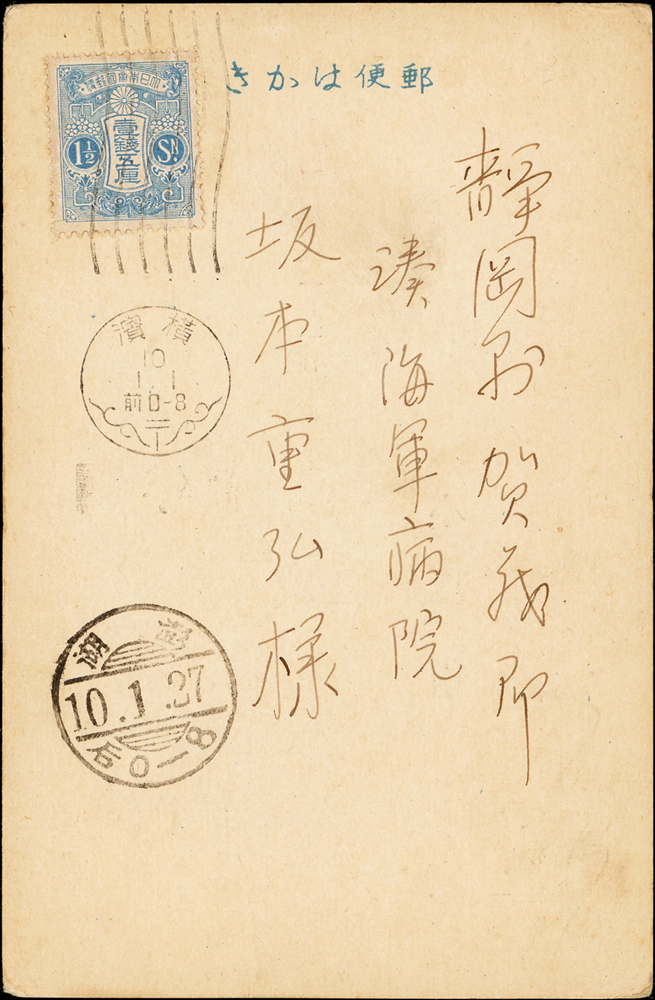 郵便はかき
大日本帝國郵便
壹錢五厘
1½ Sn.
静岡県賀茂郡
湊海軍病院
坂本重弘様
横濱
10
1.1
前0-8
10.1.27
后0-8